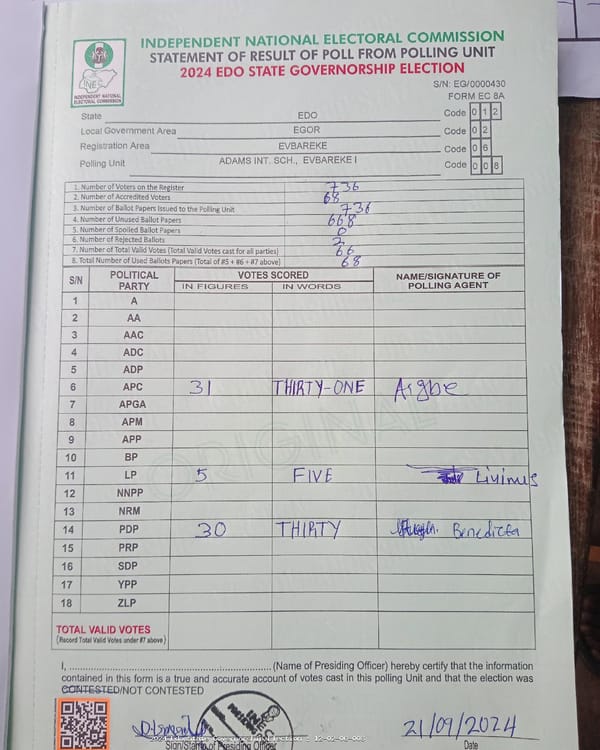 INDEPENDENT NATIONAL ELECTORAL COMMISSION
STATEMENT OF RESULT OF POLL FROM POLLING UNIT
2024 EDO STATE GOVERNORSHIP ELECTION
INEC
INDEPENDENT NATIONAL
ELECTORAL COMMISSION
S/N: EG/0000430
FORM EC 8A
State EDO Code 0 1 2
Local Government Area EGOR Code 0 2
Registration Area EVBAREKE Code 0 6
Polling Unit ADAMS INT. SCH., EVBAREKE I Code 0 0 8
1. Number of Voters on the Register 736
2. Number of Accredited Voters 68
3. Number of Ballot Papers Issued to the Polling Unit 736
4. Number of Unused Ballot Papers 668
5. Number of Spoiled Ballot Papers 0
6. Number of Rejected Ballots 2
7. Number of Total Valid Votes (Total Valid Votes cast for all parties) 66
8. Total Number of Used Ballots Papers (Total of #5 + #6 + #7 above) 68
S/N POLITICAL PARTY VOTES SCORED NAME/SIGNATURE OF POLLING AGENT
IN FIGURES IN WORDS
1 A
2 AA
3 AAC
4 ADC
5 ADP
6 APC 31 THIRTY-ONE Aigbe
7 APGA
8 APM
9 APP
10 BP
11 LP 5 FIVE Livinus
12 NNPP
13 NRM
14 PDP 30 THIRTY Benedicta
15 PRP
16 SDP
17 YPP
18 ZLP
ORIGINAL
TOTAL VALID VOTES
(Record Total Valid Votes under #7 above)
I, ........ (Name of Presiding Officer) hereby certify that the information
contained in this form is a true and accurate account of votes cast in this polling Unit and that the election was
CONTESTED/NOT CONTESTED
21/09/2024
Sign/Stamp of Presiding Officer Date